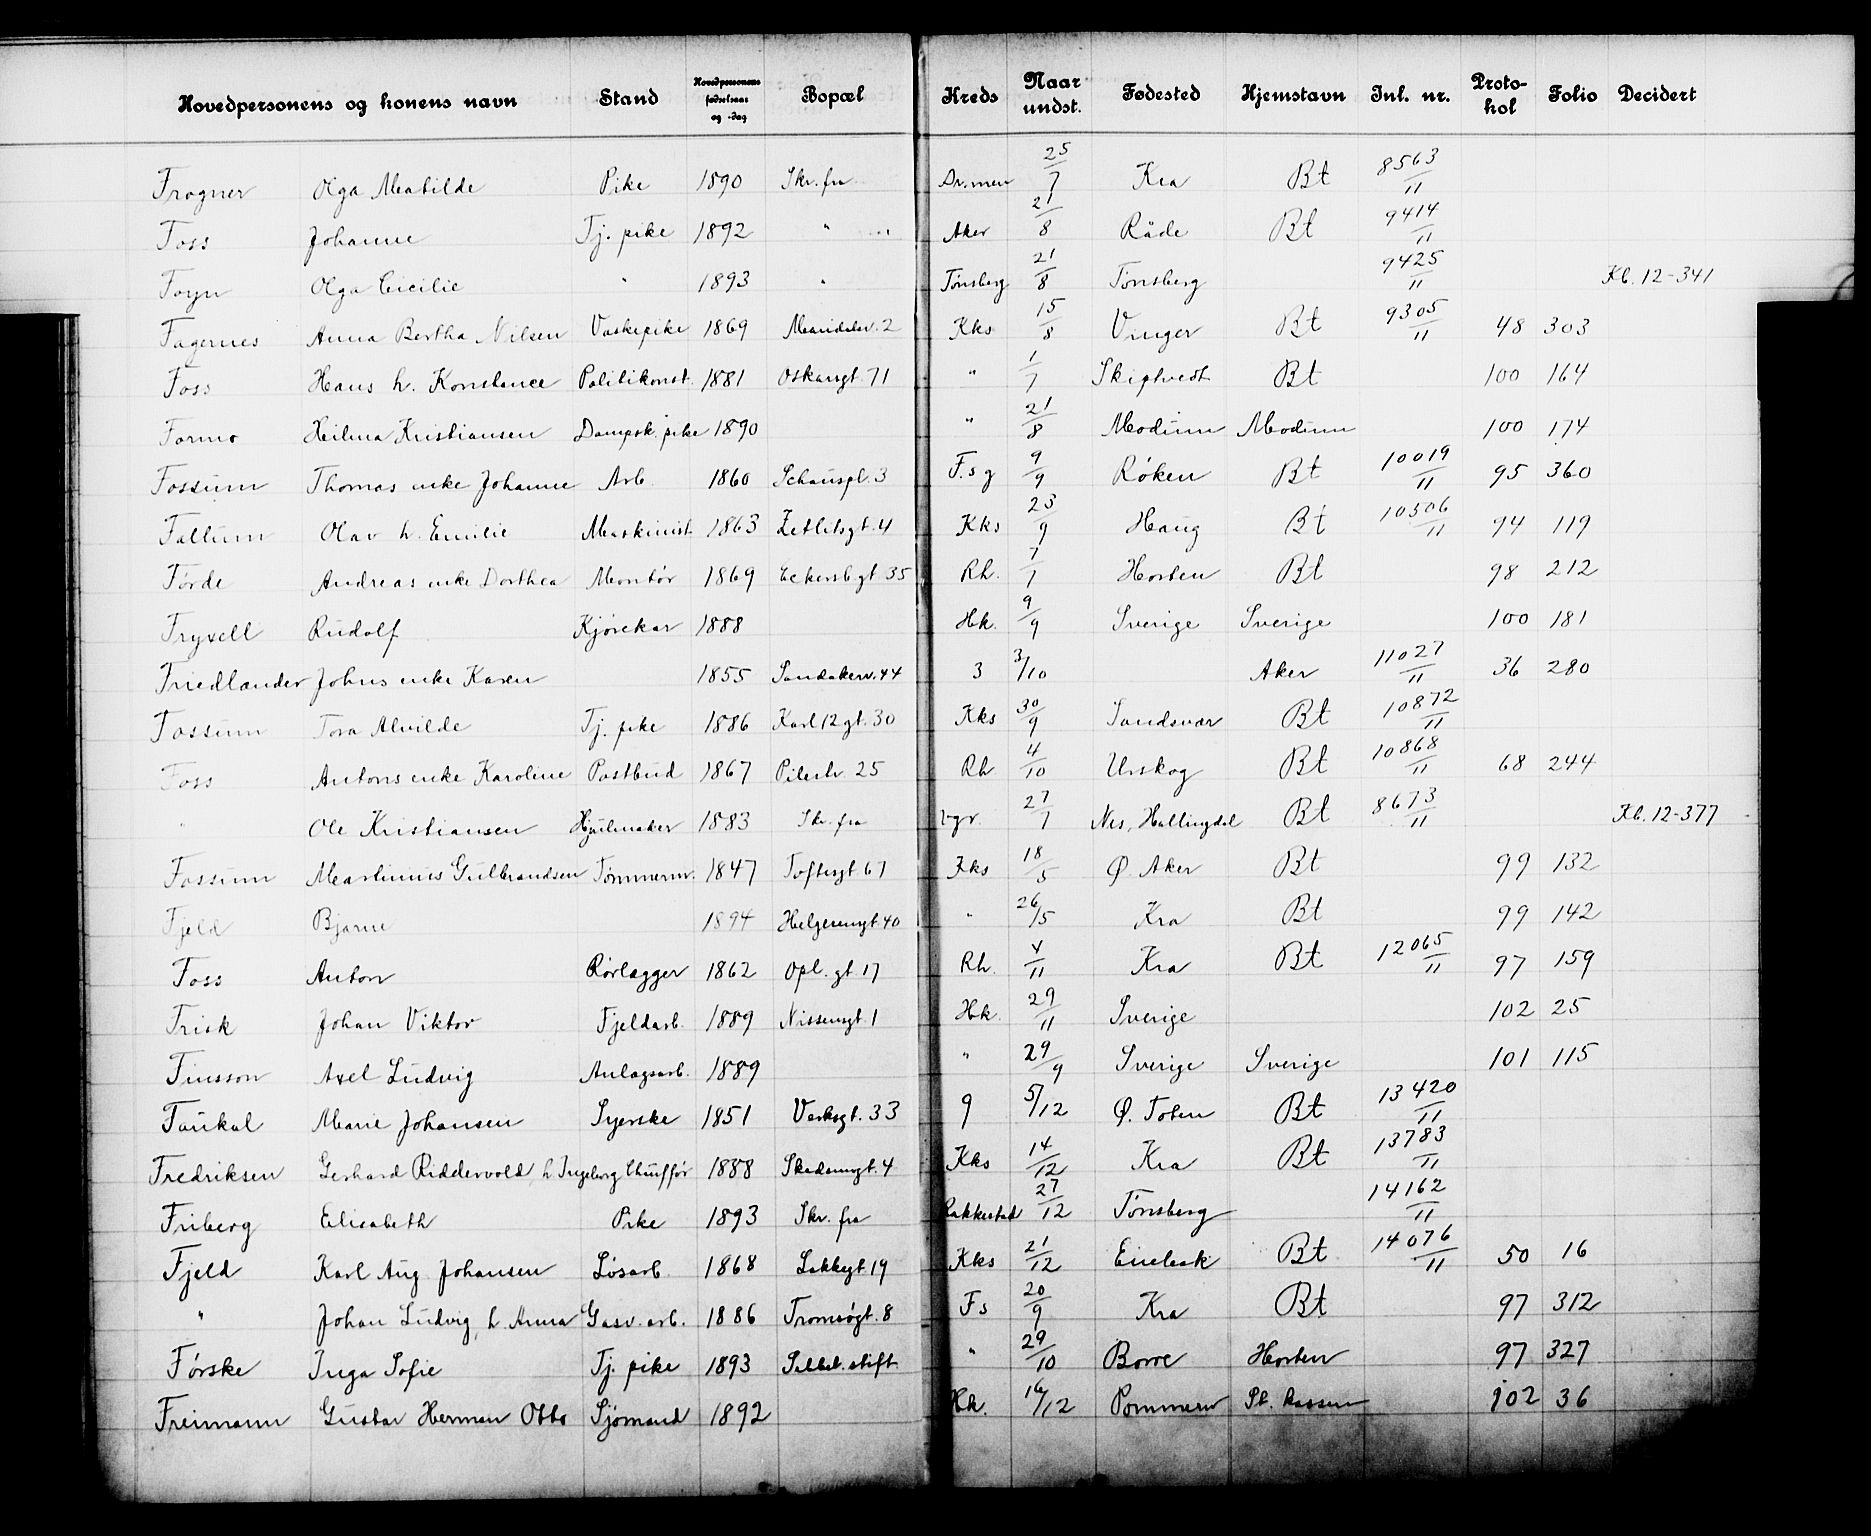 Hovedpersonens og konens navn Stand Hovedpersonens fødselsaar og -dag Bopæl Kreds Naar undst. Fødested Hjemstavn Inl. nr. Proto-kol Folio Decidert
Frogner Olga Mathilde Pike 1890 Skr. fra Dr.men 25/7 Kra Bt 8563/11
Foss Johanne Tj. pike 1892 " " Aker 21/8 Råde Bt 9414/11
Foyn Olga Cicilie " 1893 " Tønsberg 21/8 Tønsberg 9425/11 Kb. 12-341
Fagernes Anna Bertha Nilsen Vaskepike 1869 Maridalsv. 2 Kks 15/8 Vinger Bt 9305/11 48 303
Foss Hans h. Konstance Politikonst. 1881 Oskarsgt. 71 " 1/7 Skiptvedt Bt 100 164
Formo Hilma Kristiansen Dampsk. pike 1890 " 21/8 Modum Modum 100 174
Fossum Thomas enke Johanne Arb. 1860 Schouspl. 3 F.s g 9/9 Røken Bt 10019/11 95 360
Fallum Olav h. Emilie Maskinist 1863 Zetlitsgt. 4 Kks 23/9 Haug Bt 10506/11 94 119
Førde Andreas enke Dorthea Montør 1869 Eckersb.gt 35 Rh. 7/7 Horten Bt 98 212
Fryxell Rudolf Kjørekar 1888 Hk. 9/9 Sverige Sverige 100 181
Friedlander Johns enke Karen 1855 Sandakerv. 44 3 3/10 Aker 11027/11 36 280
Fossum Tora Alvilde Tj. pike 1886 Karl 12 gt. 30 Kks 30/9 Sandsvær Bt 10872/11
Foss Antons enke Karoline Postbud 1867 Pilestr. 25 Rh 4/10 Urskog Bt 10868/11 68 244
" Ole Kristiansen Hjulmaker 1883 Skr. fra 27/7 Nes, Hallingdal Bt 8673/11 Kb. 12-377
Fossum Martinius Gulbrandsen Tømmerm. 1847 Toftesgt 67 Kks 18/5 Ø. Aker Bt 99 132
Fjeld Bjarne 1894 Helgesensgt 40 " 26/5 Kra Bt 99 142
Foss Anton Rørlægger 1862 Opl. gt. 17 Rh. 4/11 Kra Bt 12065/11 97 159
Frisk Johan Viktor Fjeldarb. 1889 Nissensgt. 1 Hk. 29/11 Sverige 102 25
Finsson Axel Ludvig Anlægsarb. 1889 " 29/9 Sverige Sverige 101 115
Faukal Marie Johansen Syerske 1851 Verksgt. 33 9 5/12 Ø. Toten Bt 13420/11
Fredriksen Gerhard Riddervold, h Ingeborg Chuffør 1888 Skedsmogt. 4 Kks 14/12 Kra Bt 13783/11
Friberg Elisabeth Pike 1893 Skr. fra Rakkestad 27/12 Tønsberg 14162/11
Fjeld Karl Aug. Johansen Løsarb. 1868 Lakkegt. 19 Kks 21/12 Enebak Bt 14076/11 50 16
" Johan Ludvig, h. Anna Gasv. arb. 1886 Tromsøgt. 8 Fs 20/9 Kra Bt 97 312
Førske Inga Sofie Tj. pike 1893 Selbst. stift " 29/10 Borre Horten 97 327
Freimann Gustav Herman Otto Sjømand 1892 Hk. 16/12 Pommern 102 36